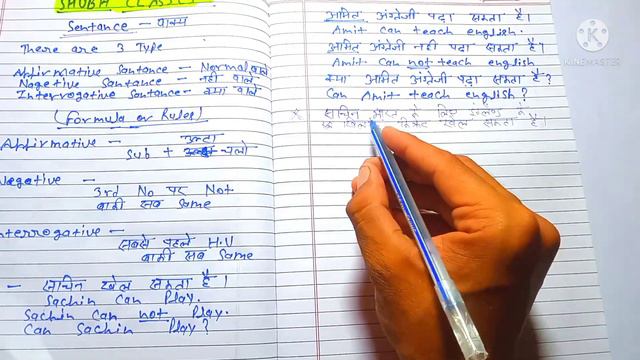 SHUBH CLASSES
Sentance - वाक्य
There are 3 Type
Affirmative Santance - Normal वाले
Negetive Santance - नहीं वाले
Interrogative Santance - क्या वाले
(Formula or Rules)
Affirmative - उल्टा
Sub + चलो
Negative -
3rd No पर Not
बाकी सब Same
Interrogative -
सबसे पहले H.V
बाकी सब Same
- सचिन खेल सकता है।
Sachin Can Play.
Sachin can not Play.
Can Sachin Play?
अमित अंग्रेजी पढ़ा सकता है।
Amit Can teach english.
अमित अंग्रेजी नहीं पढ़ा सकता है।
Amit Can not teach english
क्या अमित अंग्रेजी पढ़ा सकता है?
Can Amit teach english?
सचिन भारत के लिए इंग्लैण्ड के
क्रिकेट खेल सकता है।
KINEMASTER